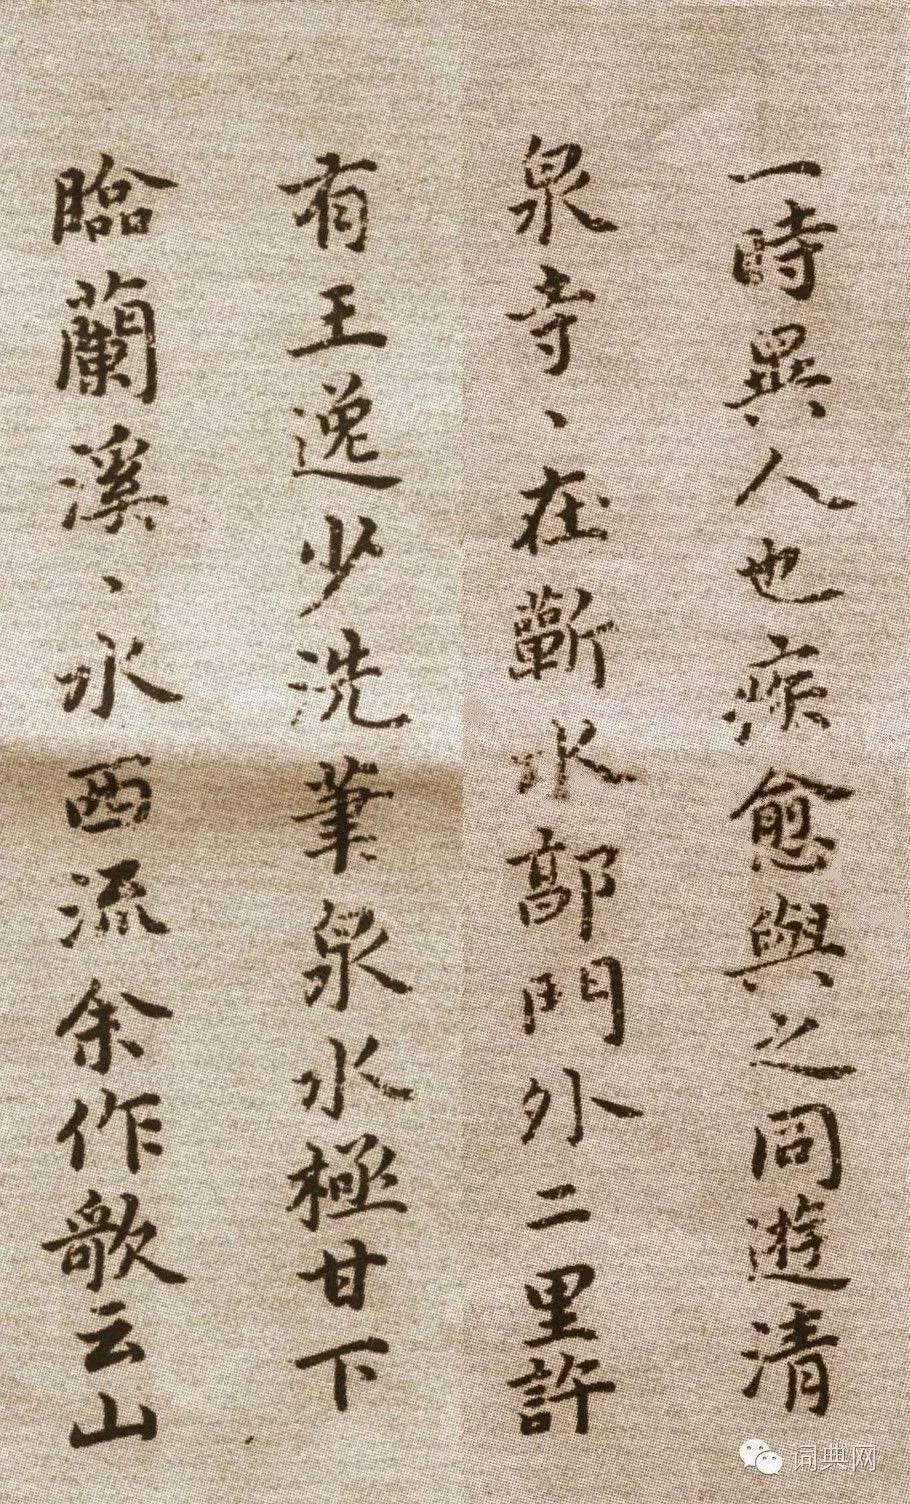 一時異人也疾愈與之同遊清
泉寺、在蘄水郭門外二里許
有王逸少洗筆泉水極甘下
臨蘭溪、水西流余作歌云山
词典网